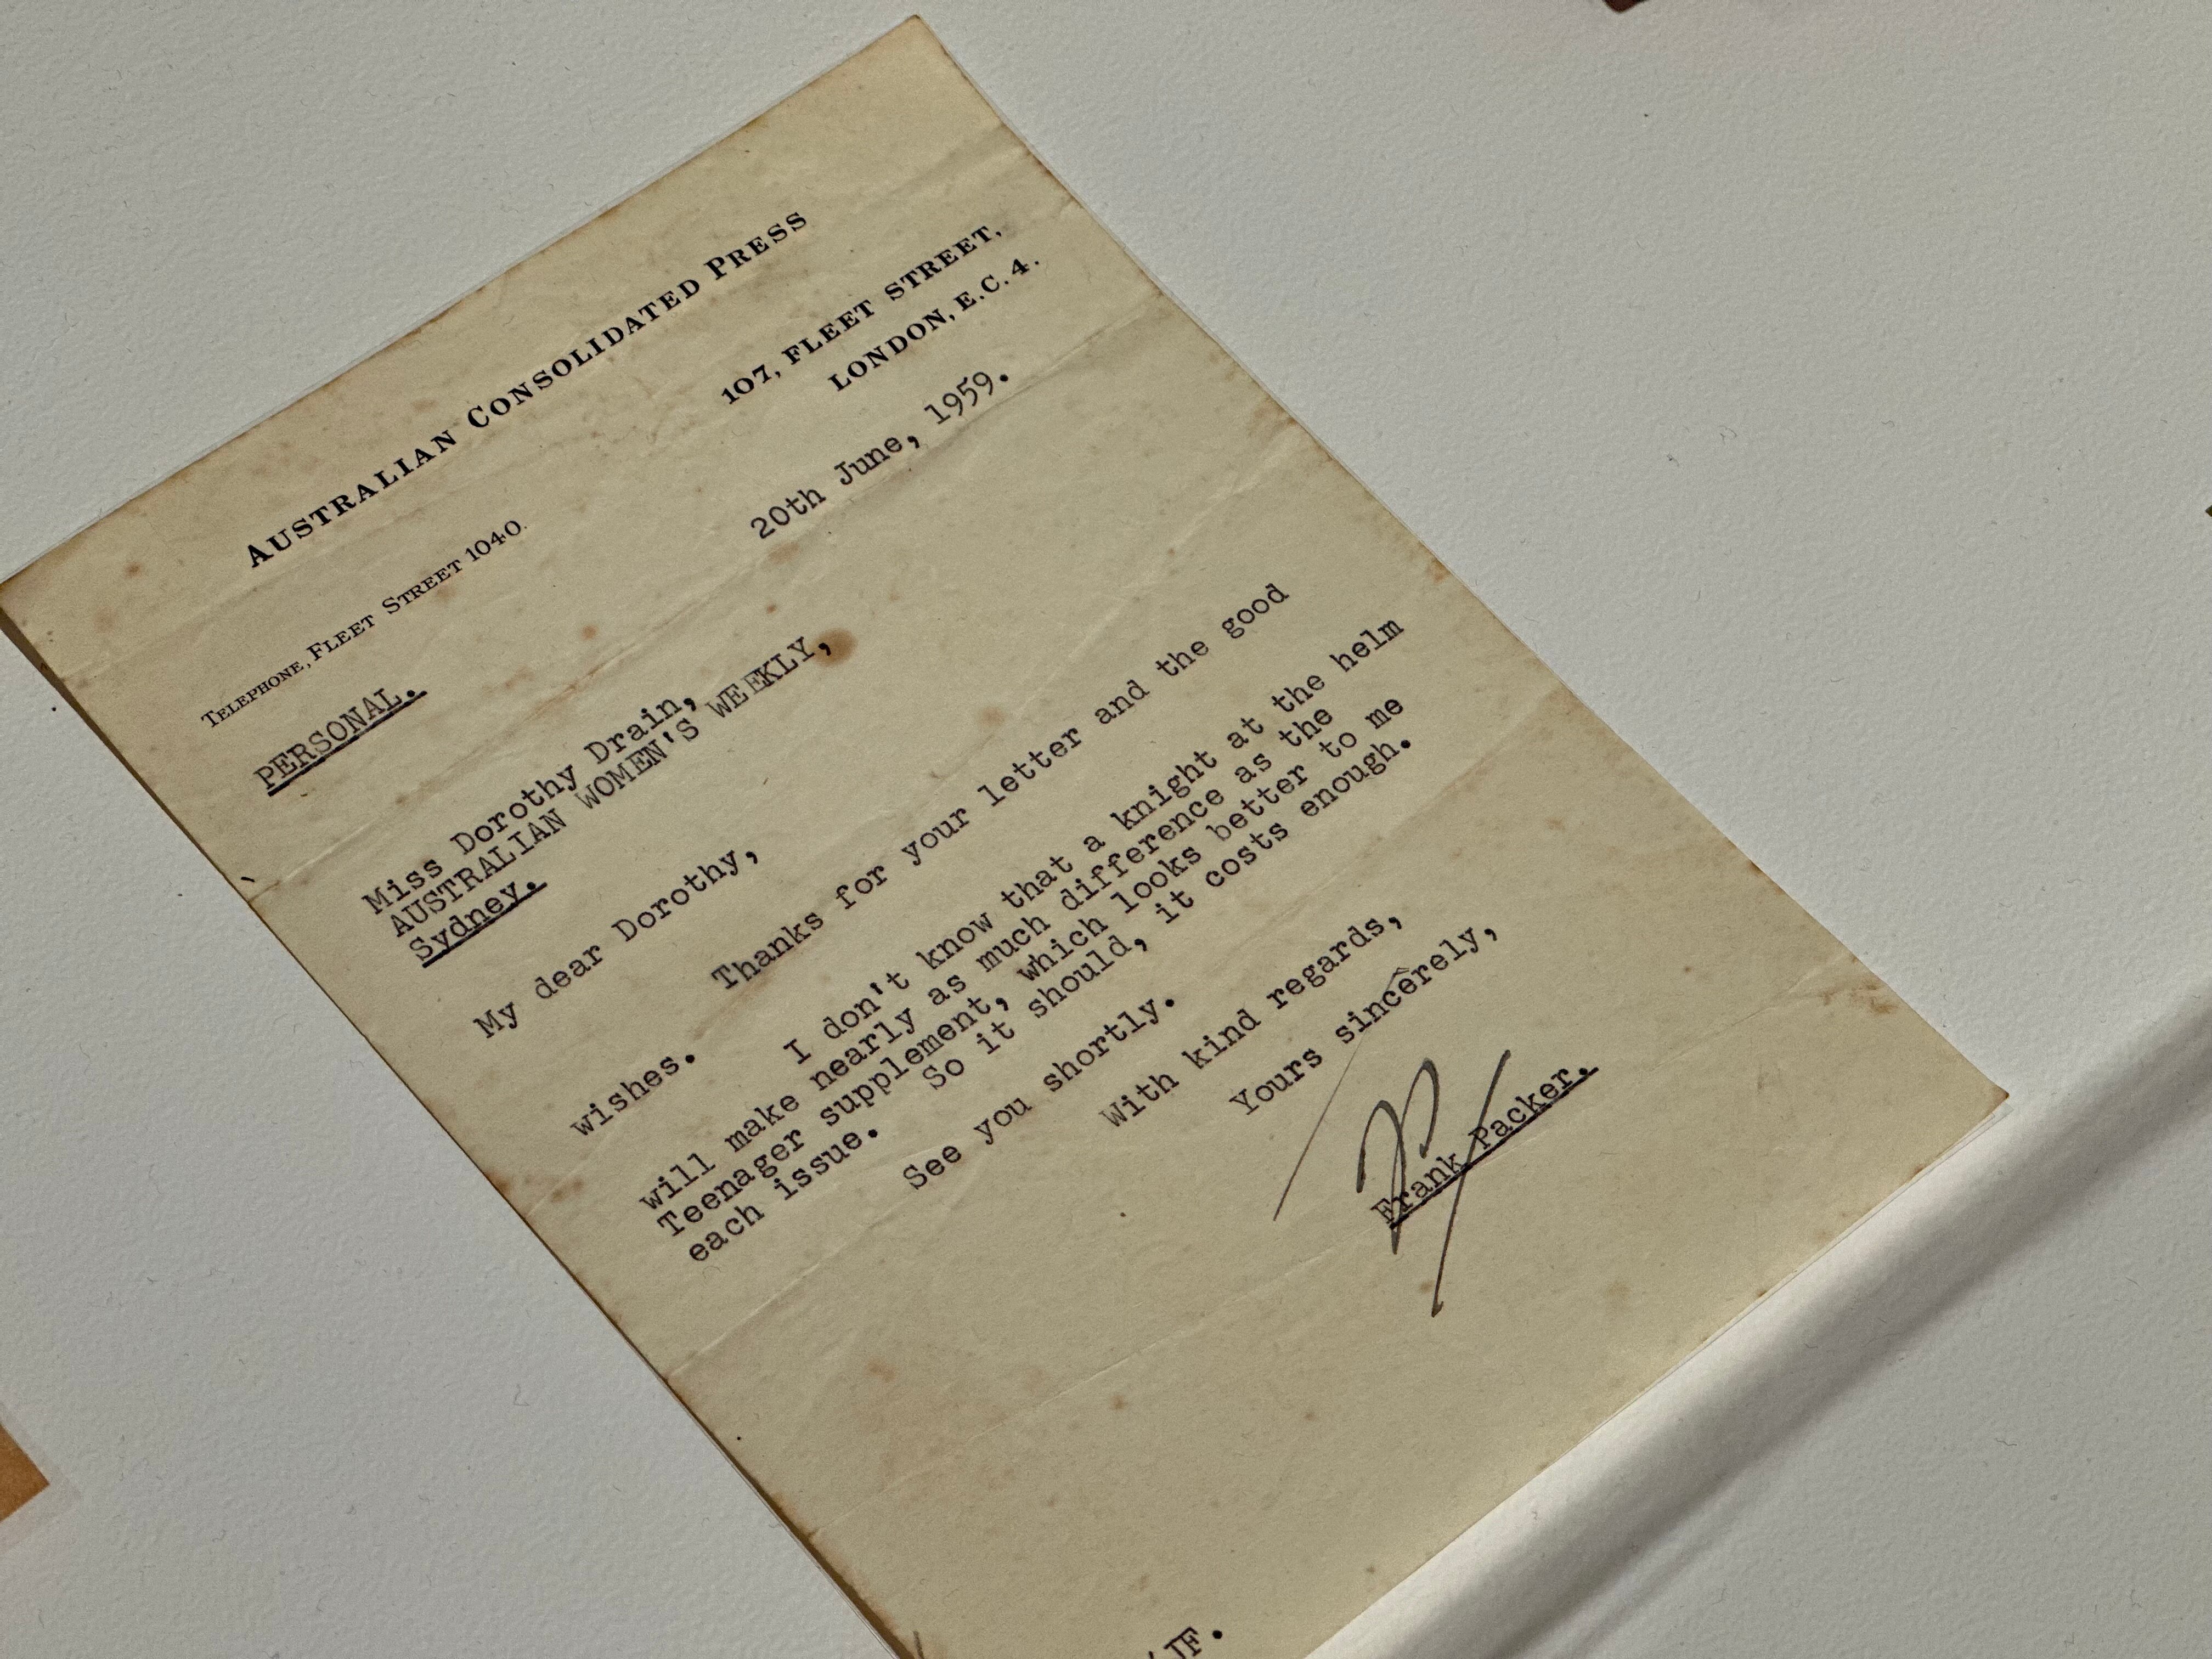 AUSTRALIAN CONSOLIDATED PRESS
107, FLEET STREET,
LONDON, E.C.4.
TELEPHONE, FLEET STREET 1040.
20th June, 1959.
PERSONAL.
Miss Dorothy Drain,
AUSTRALIAN WOMEN'S WEEKLY,
Sydney.
My dear Dorothy,
Thanks for your letter and the good
wishes.
I don't know that a knight at the helm
will make nearly as much difference as the
Teenager supplement, which looks better to me
each issue. So it should, it costs enough.
See you shortly.
With kind regards,
Yours sincerely,
Frank Packer.